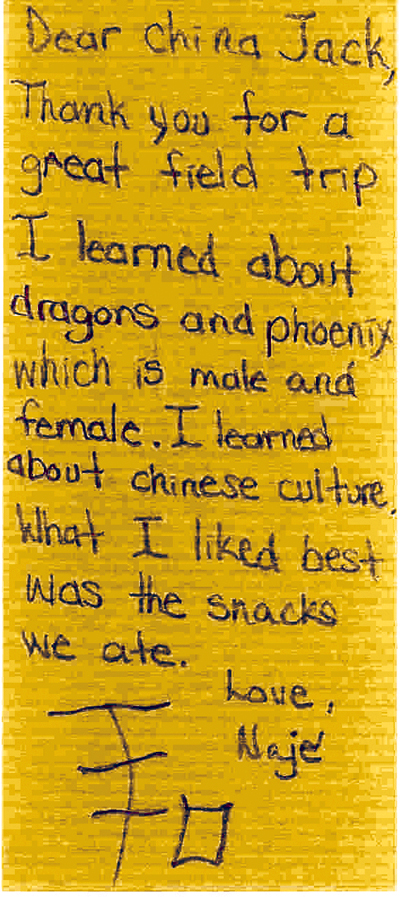 Dear China Jack,
Thank you for a
great field trip
I learned about
dragons and phoenix
which is male and
female. I learned
about chinese culture.
What I liked best
was the snacks
we ate.
Love,
Najé